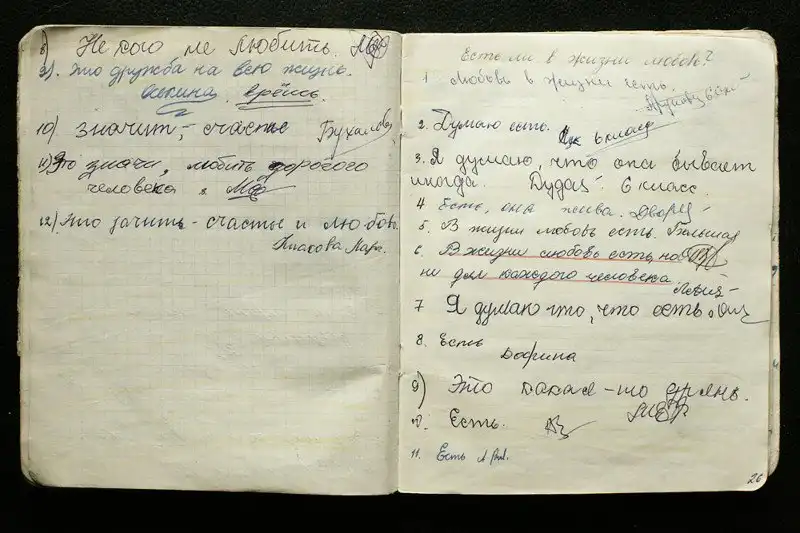 8) Не кого не любить.
9). Это дружба на всю жизнь.
10) значит, - счастье Бухалова
11) Это значи, любить дорогого
человека.
12) Это зачить - счастье и любовь.
Власова Мар.
Есть ли в жизни любовь?
1 Любовь в жизни есть.
2. Думаю есть. 6 класс
3. Я думаю, что она бывает
иногда. ДудаS 6 класс.
4 Есть, она жива.
5. В жизни любовь есть.
6. В жизни любовь есть, но
ни для каждого человека
7 Я думаю что, что есть.
8. Есть
Дорина
9) Это какая-то дрянь.
10. Есть.
11. Есть
26